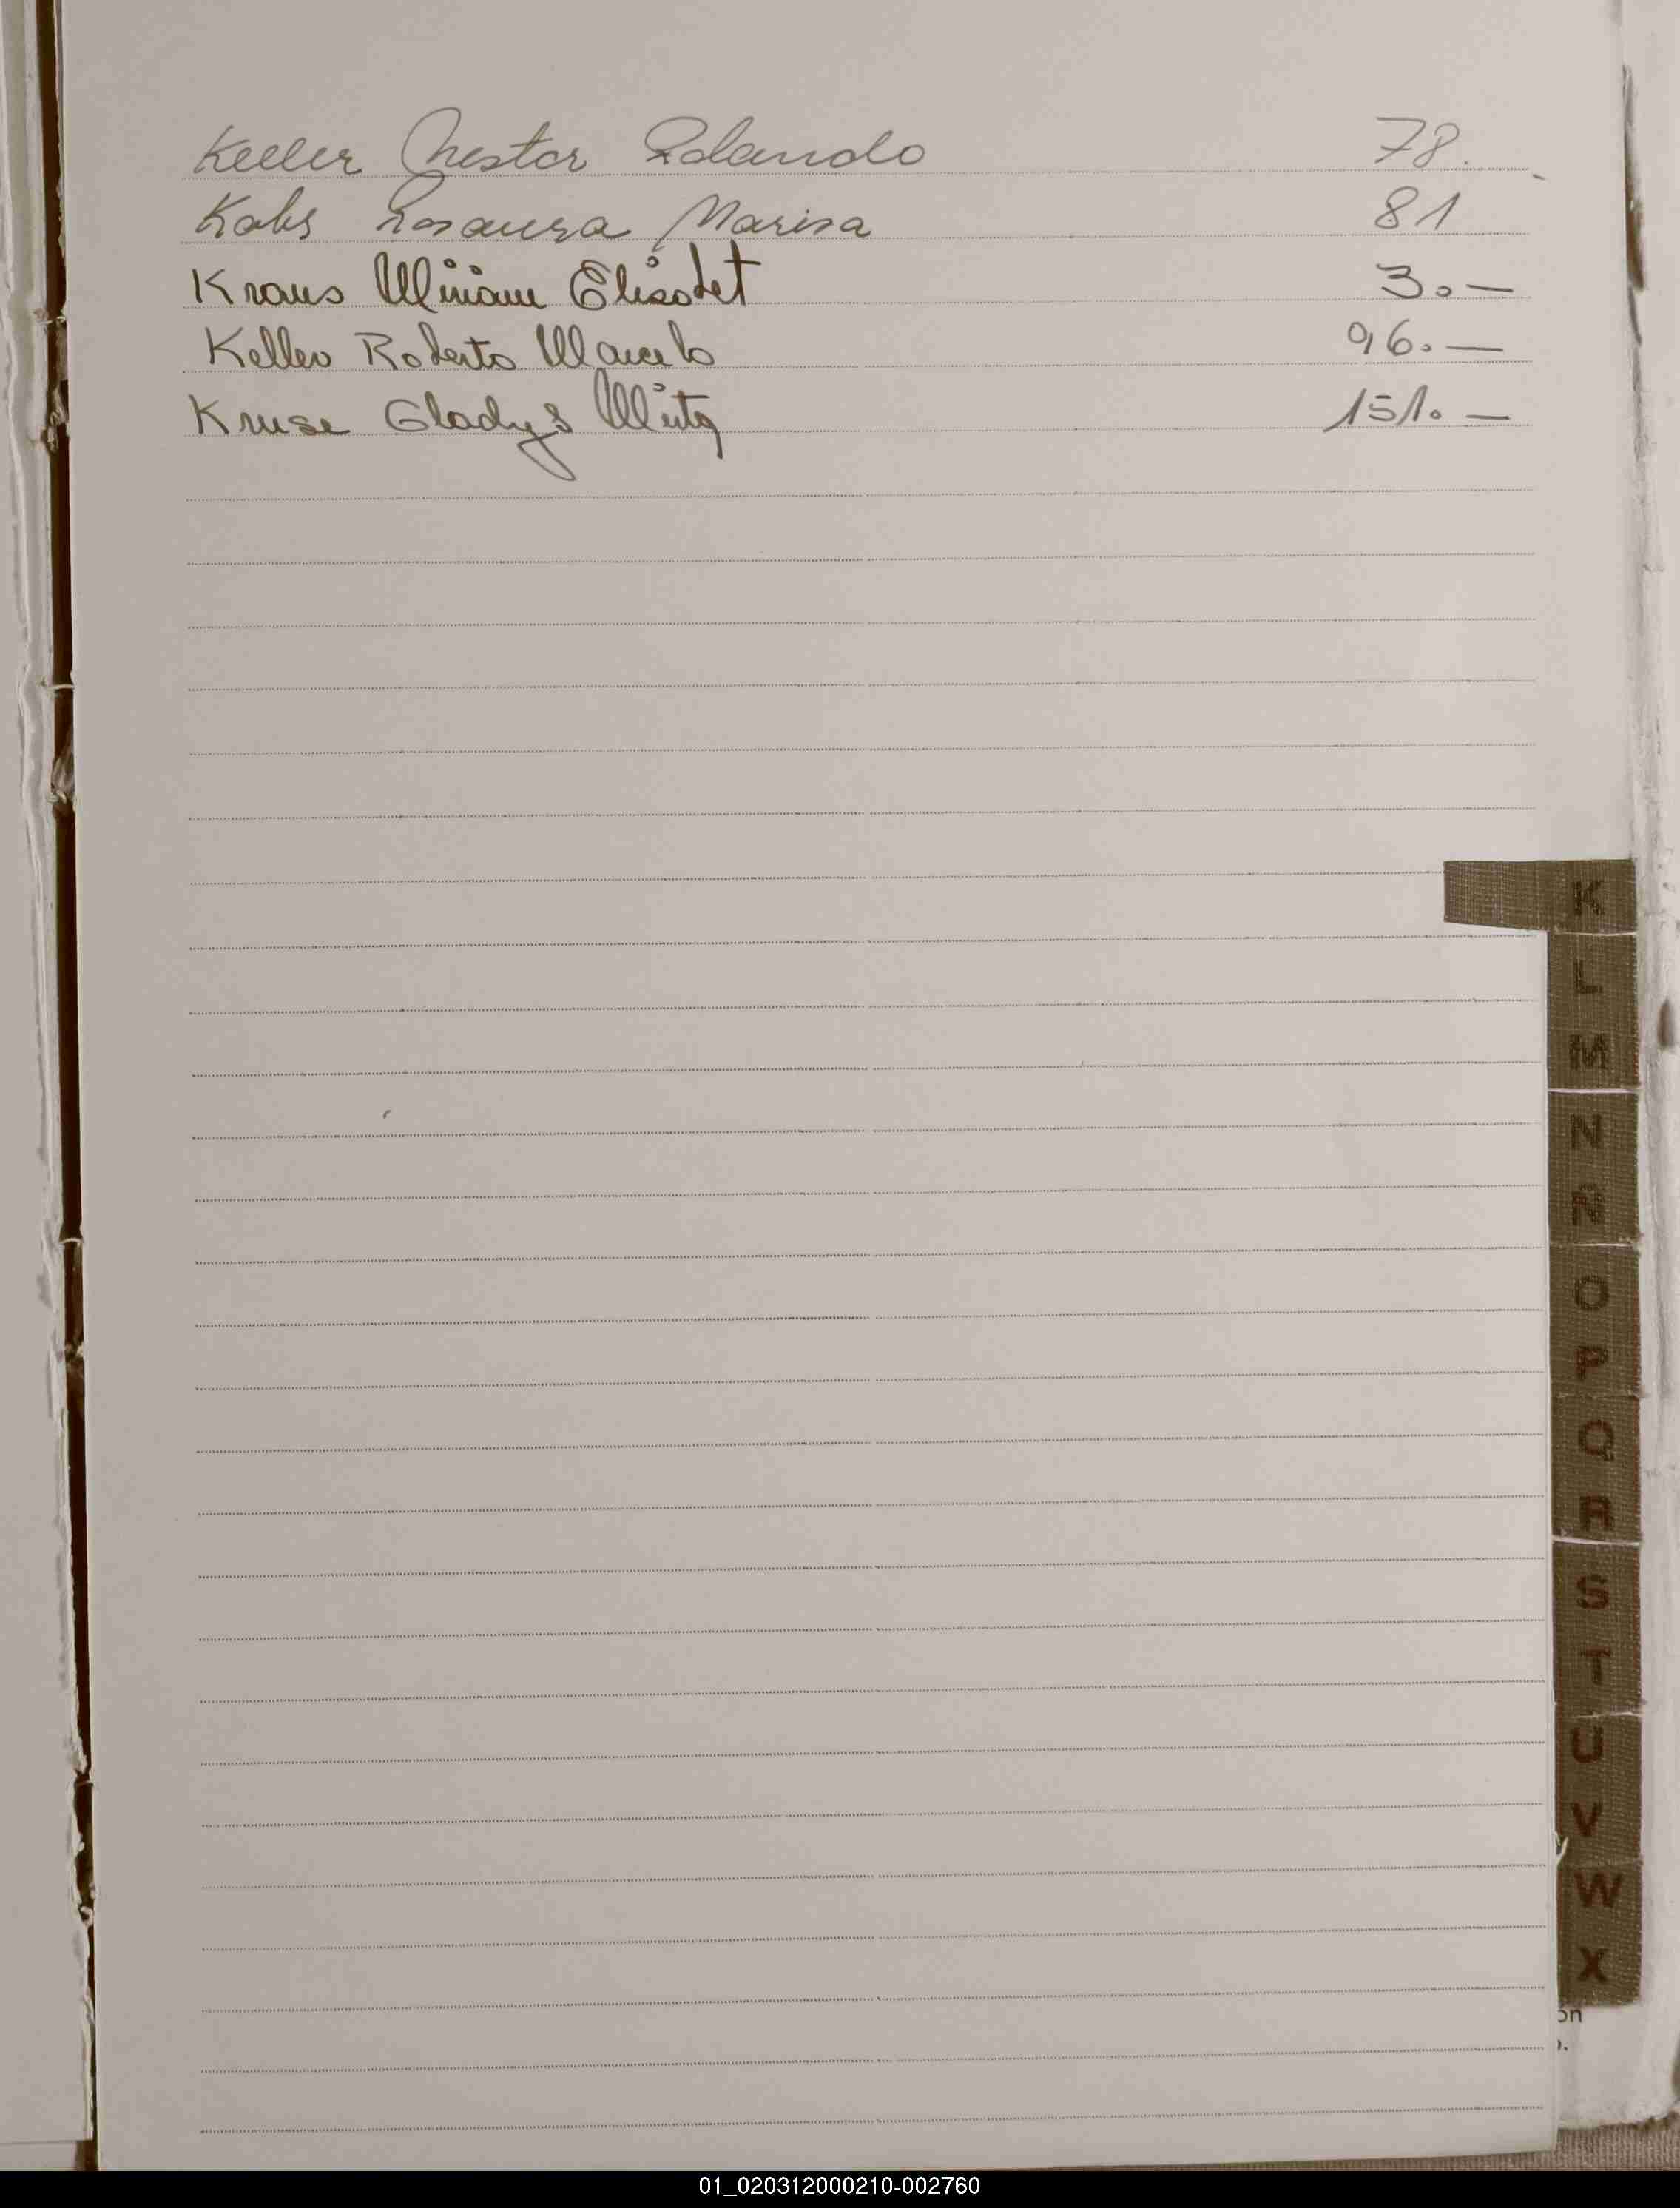 Keller Nestor Rolando 78.
Kabs Rosaura Marisa 81
Kraus Miriam Elisabet 3.—
Keller Roberto Marcelo 96.—
Kruse Gladys Mirta 151.—
K
L
M
N
Ñ
O
P
Q
R
S
T
U
V
W
X
ón
01_020312000210-002760